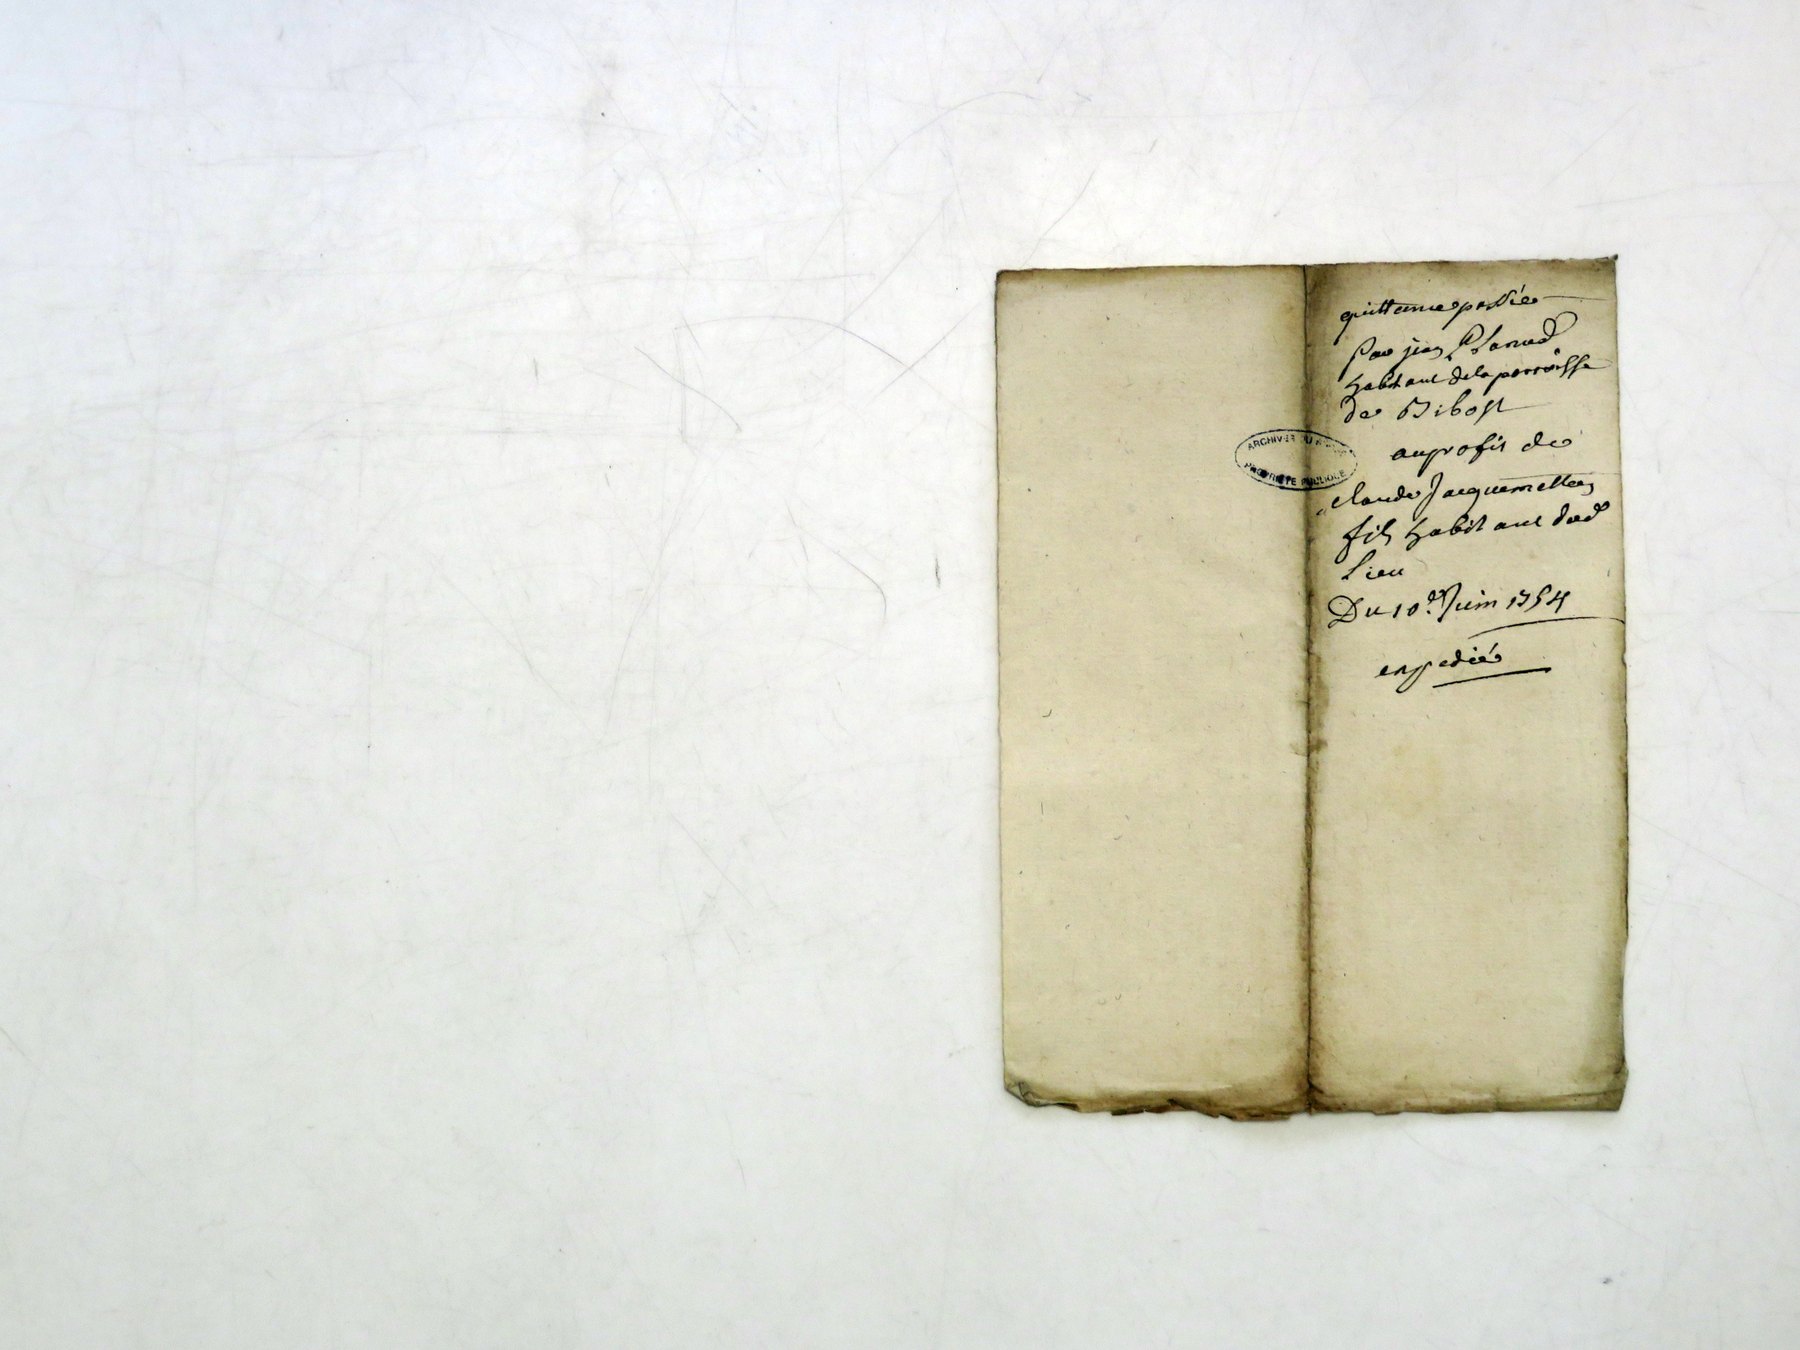 quittance passée
Par jean
habitant de la parroisse
de Bibost
au profit de
ARCHIVES DU RHÔNE
PROPRIÉTÉ PUBLIQUE
claude Jacquemetton
fils habitant dud
Lieu
Du 10e Juin 1754
expedié